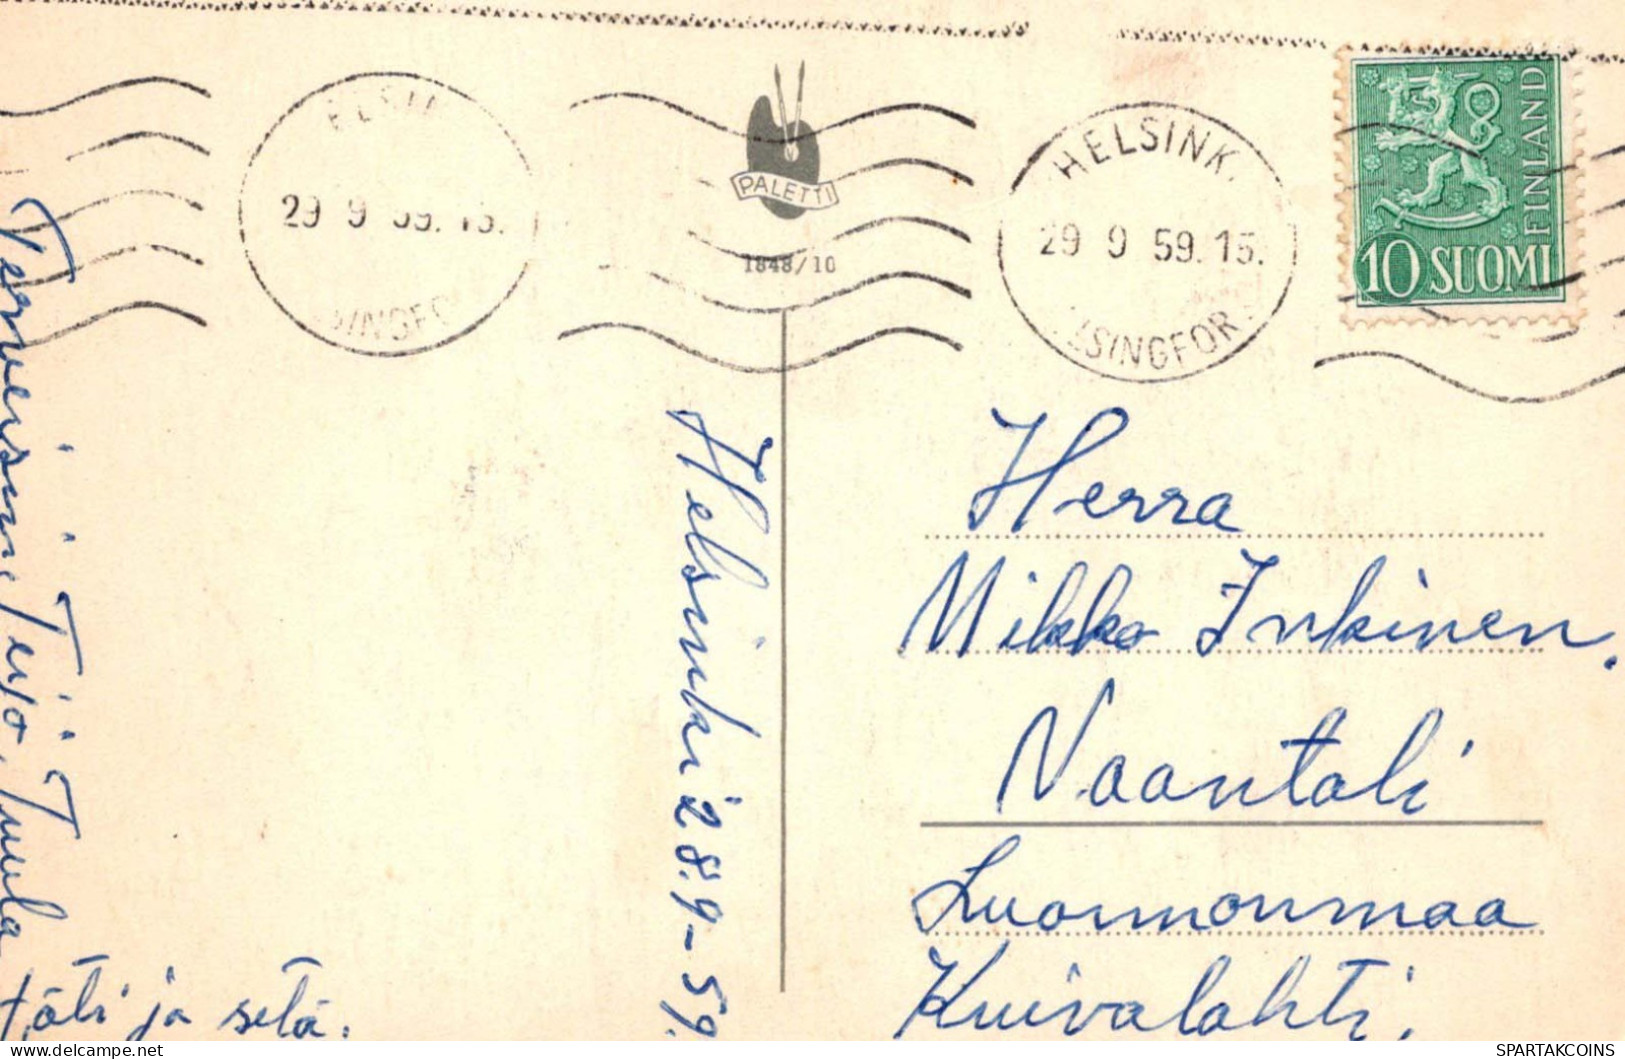 ELSIN
29 9 59. 15.
SINGFO
PALETTI
1848/10
HELSINKI
29 9 59. 15.
LSINGFOR
FINLAND
10 SUOMI
Terveisin Teijo, Tuula
täti ja setä.
Helsinki 28.9-59.
Herra
Mikko Inkinen.
Naantali
Luonnonmaa
Kuivalahti.
SPARTAKCOINS